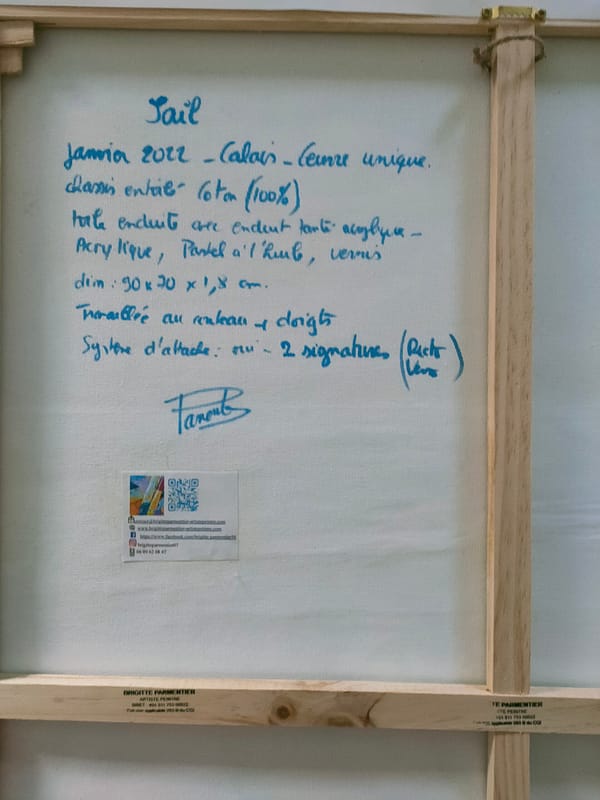 Jail
Janvier 2022 - Calais - Oeuvre unique.
chassis entoilé Coton (100%)
toile enduite avec enduit acrylique -
Acrylique, Pastel à l'huile, vernis
dim : 90 x 70 x 1,8 cm.
Travaillée au couteau + doigts
Système d'attache : oui - 2 signatures (Recto
Verso)
www.brigitteparmentier-artistepeintre.com
BRIGITTE PARMENTIER
ARTISTE PEINTRE
TE PARMENTIER
TE PEINTRE